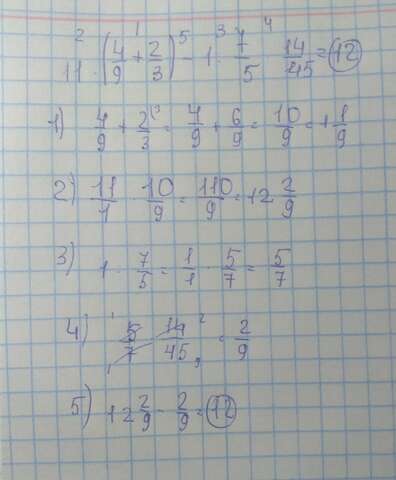 2 1 5 3 4
11 · (4/9 + 2/3) - 1 · 7/5 14/45 = 12
1) 4/9 + 2/3 (3 = 4/9 + 6/9 = 10/9 = 1 1/9
2) 11/1 · 10/9 = 110/9 = 12 2/9
3) 1 · 7/5 = 1/1 · 5/7 = 5/7
4) 1 5/7 · 14/45 2 9 1 = 2/9
5) 12 2/9 - 2/9 = 12